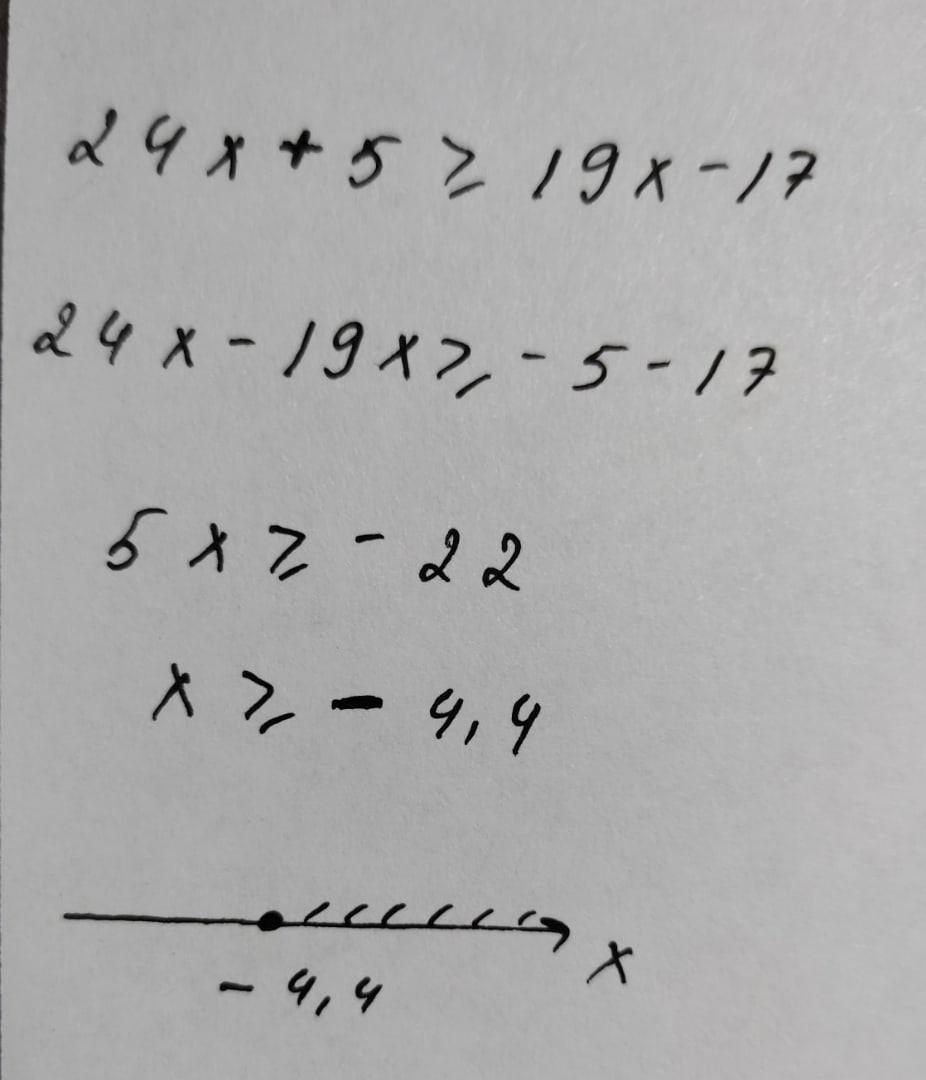 24x + 5 ≥ 19x - 17
24x - 19x ≥ - 5 - 17
5x ≥ - 22
x ≥ - 4,4
- 4,4
x